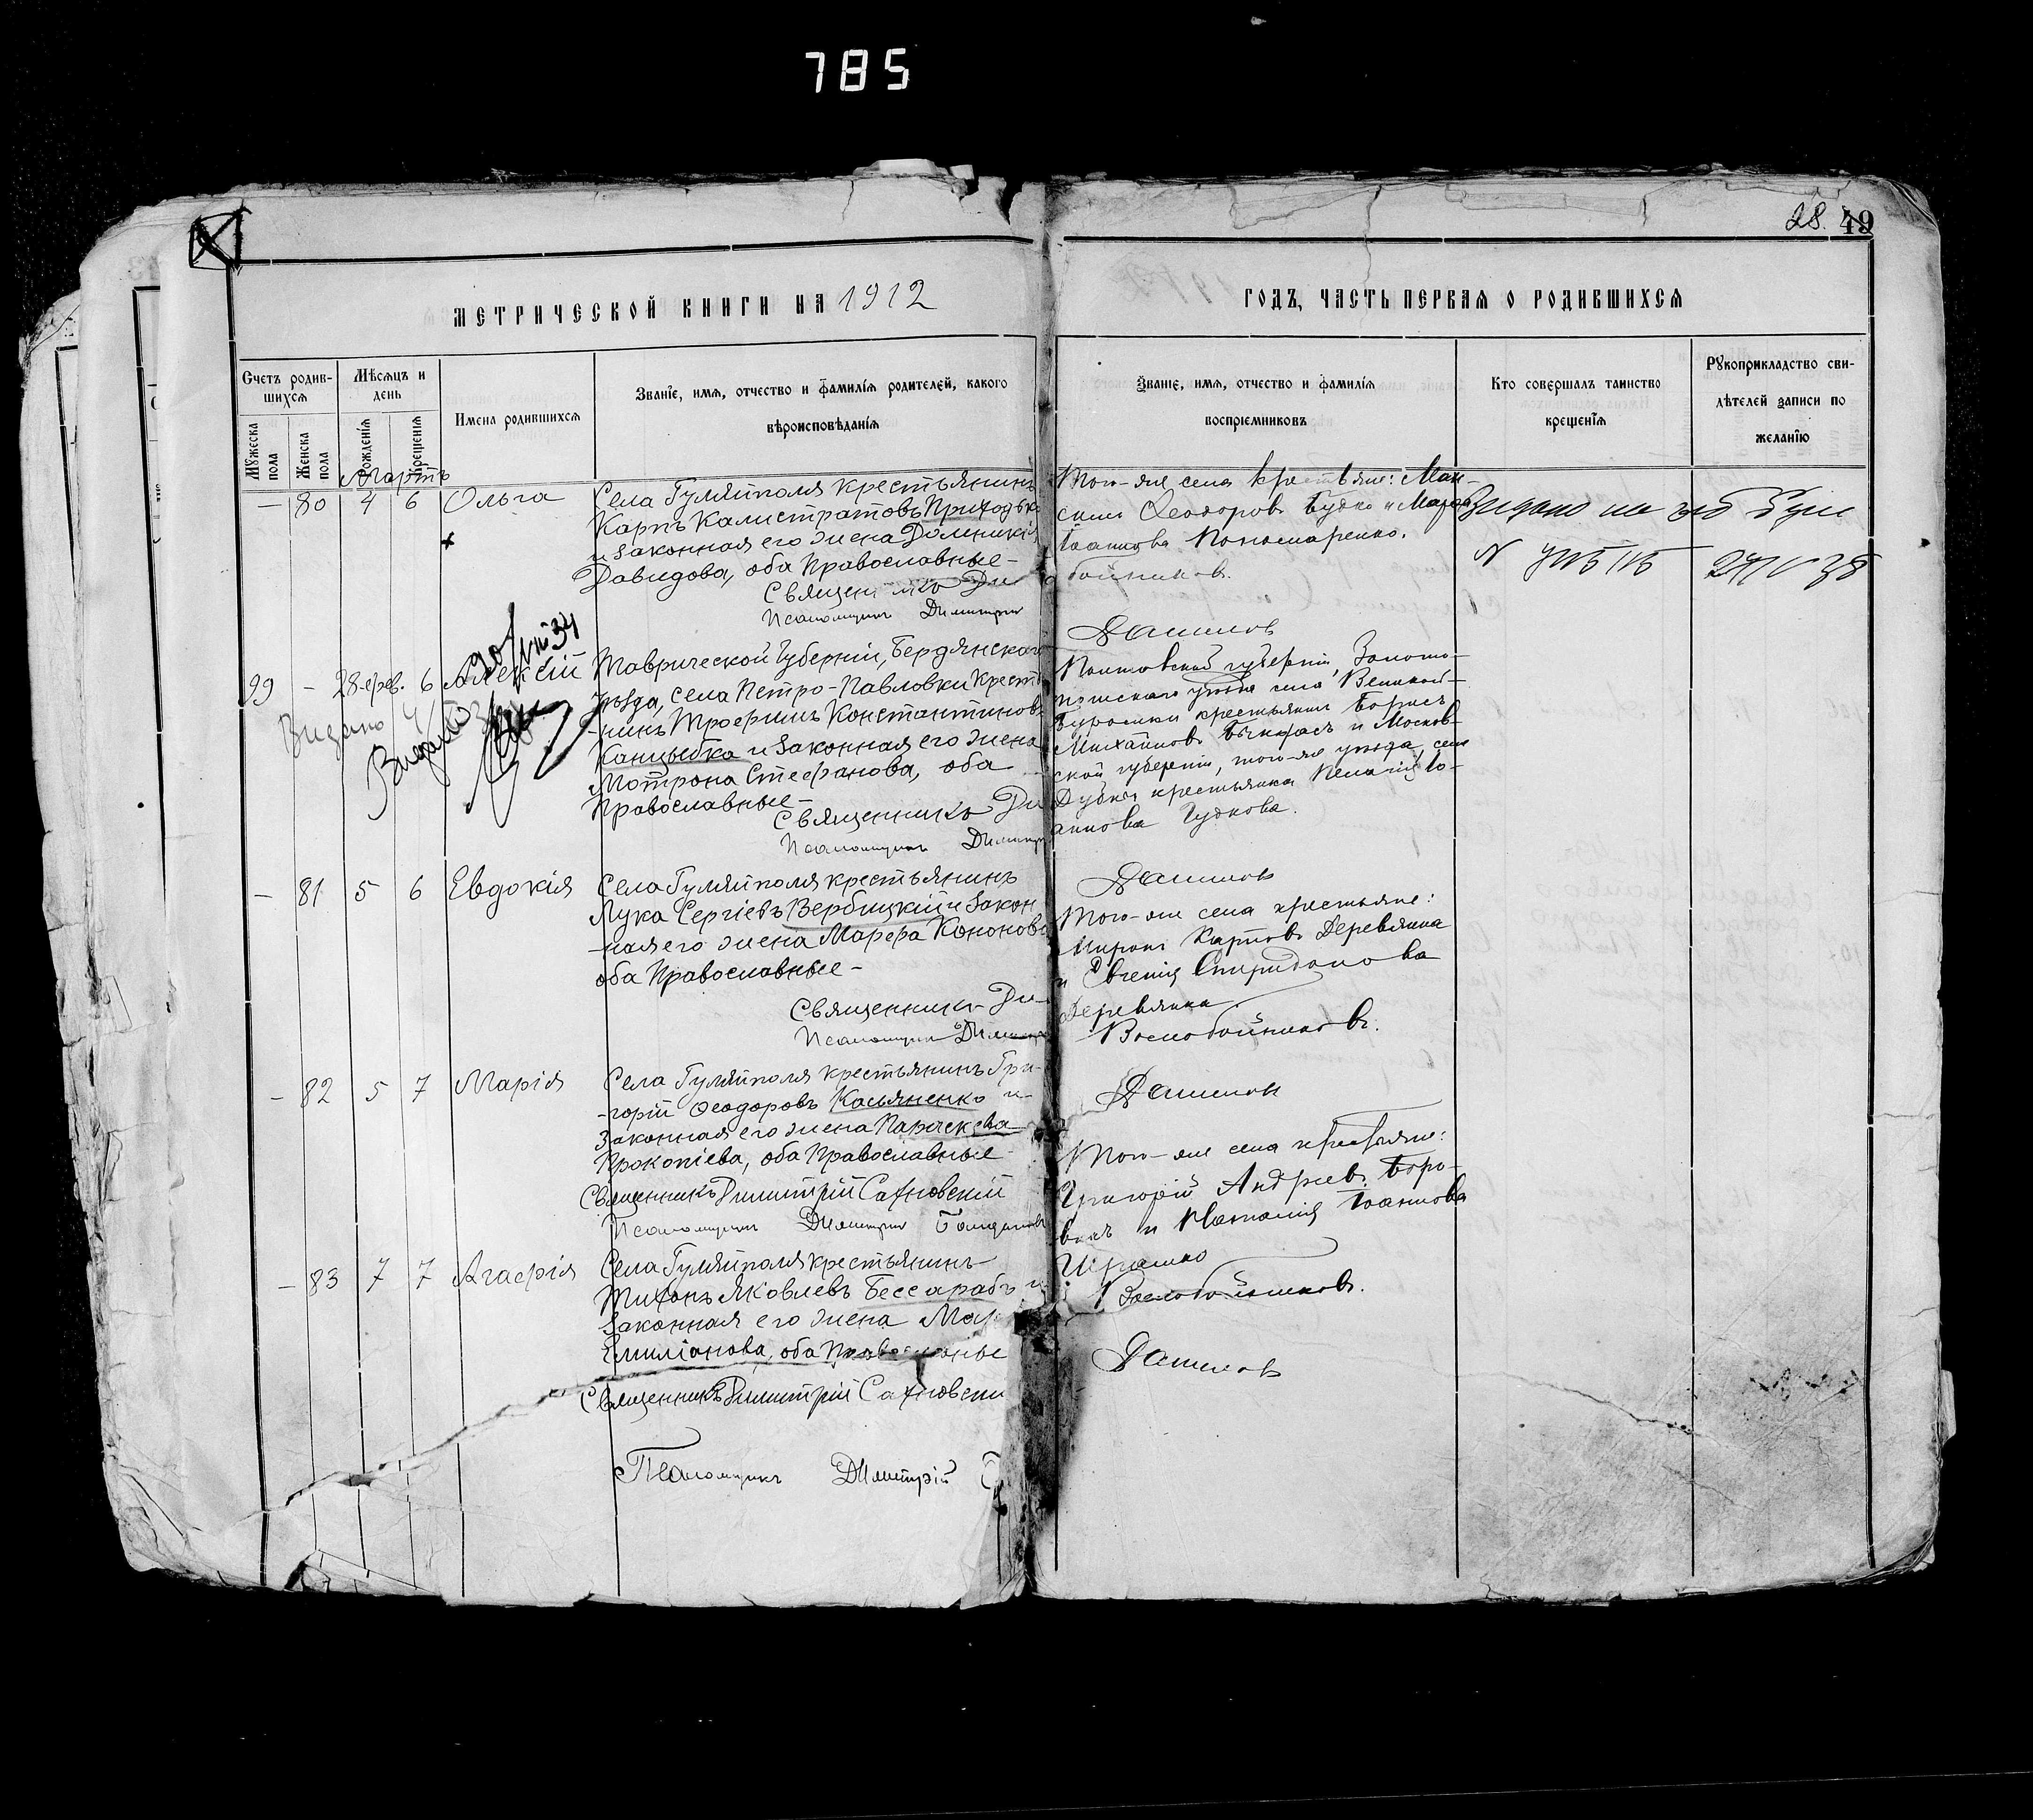 785
28. 49
МЕТРИЧЕСКОЙ КНИГИ НА 1912
ГОДЪ, ЧАСТЬ ПЕРВАЯ О РОДИВШИХСЯ
Счетъ родив-
шихся
Мужеска пола
Женска пола
Мѣсяцъ и
день
Рожденія
Крещенія
Имена родившихся
Званіе, имя, отчество и фамилія родителей, какого
вѣроисповѣданія
Званіе, имя, отчество и фамилія
воспріемниковъ
Кто совершалъ таинство
крещенія
Рукоприкладство сви-
дѣтелей записи по
желанію
Мартъ
— 80 4 6 Ольга
Села Гуляйполя крестьянинъ
Карпъ Калистратовъ Приходько
и законная его жена Домникія
Давидова, оба Православные-
Священникъ Ди
Псаломщикъ Димитрій
Того-же села крестьяне: Мак-
симъ Ѳеодоровъ Будко и Марѳа
Іоаннова Пономаренко.
бойниковъ.
Видано на
24/V 38
99 - 28 фев. 6 Алексій
Видано
Таврической Губерніи, Бердянскаго
Уѣзда, села Петро-Павловки Кресть
-нинъ Трофимъ Константиновъ
Канцыбка и законная его жена
Мотрона Стефанова, оба
Православные-
Священникъ Ди
Псаломщикъ Димитр
Полтавской губерніи, Золото-
ношскаго уѣзда села Великой-
Буромки крестьянинъ Борисъ
Михайловъ и Москов-
ской губерніи, того-же уѣзда, села
крестьянка Пелагія Іо-
аннова Гудкова.
— 81 5 6 Евдокія
Села Гуляйполя крестьянинъ
Лука Сергіевъ Вербицкій и закон
-ная его жена Марфа Кононова
оба Православные-
Священникъ Ди-
Псаломщикъ Димитр
Того-же села крестьяне:
Миронъ Карповъ Деревянка
и Евгенія Спиридонова
Деревянка
Воскобойниковъ.
- 82 5 7 Марія
Села Гуляйполя крестьянинъ Гри-
-горій Ѳеодоровъ Касьяненко и-
законная его жена Параскева
Прокопіева, оба Православные-
Священникъ Димитрій Сахновскій
Псаломщикъ Димитрій
Того-же села крестьяне:
Григорій Андреевъ Боро-
викъ и Наталія Іоаннова
Воскобойниковъ.
— 83 7 7 Агафія
Села Гуляйполя крестьянинъ
Тихонъ Яковлевъ Бессарабъ и
законная его жена Мар
Емиліанова, оба Православные
Священникъ Димитрій Сахновски
Псаломщикъ Димитрій